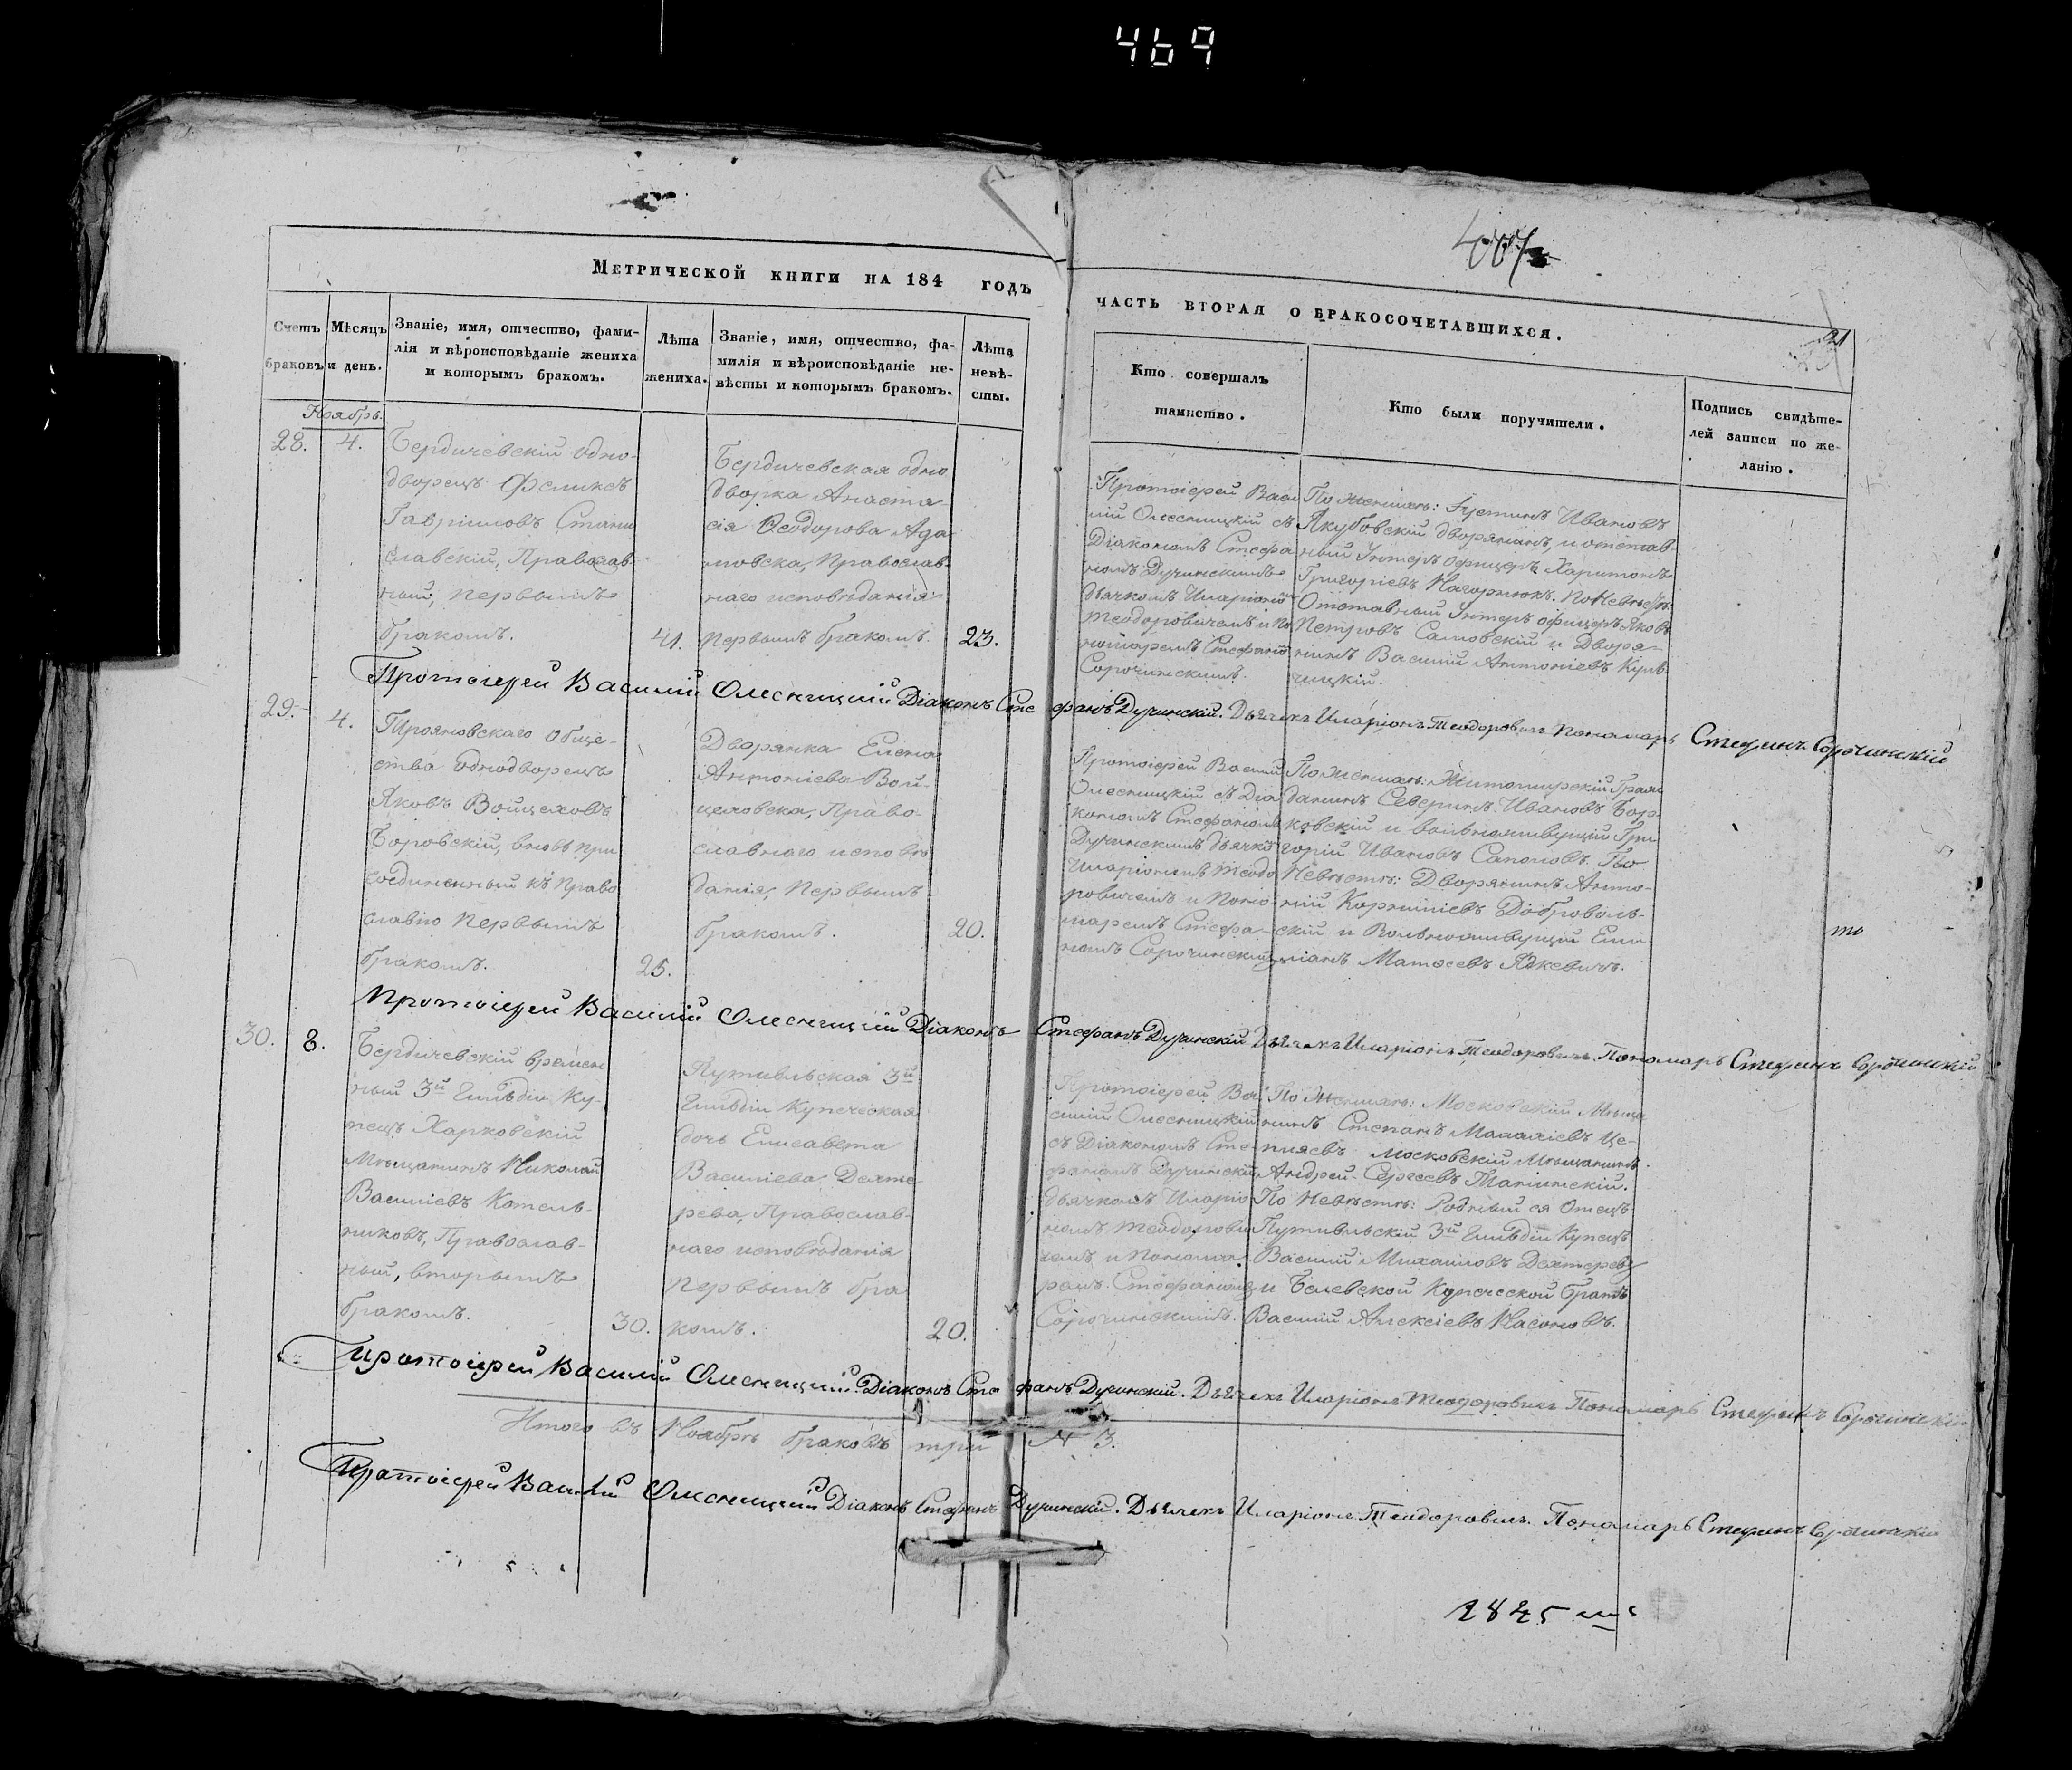 469
407
21
Метрической книги на 184 годъ
часть вторая о бракосочетавшихся.
Счетъ браковъ
Мѣсяцъ и день.
Званіе, имя, отчество, фами-
лія и вѣроисповѣданіе жениха
и которымъ бракомъ.
Лѣта
жениха.
Званіе, имя, отчество, фа-
милія и вѣроисповѣданіе не-
вѣсты и которымъ бракомъ.
Лѣта
невѣ-
сты.
Кто совершалъ
таинство.
Кто были поручители.
Подпись свидѣте-
лей записи по же-
ланію.
Ноябрь.
28. 4.
Бердичевскій одно-
дворецъ Феликсъ
Гавріиловъ Стани
славскій, Православ
ный, первымъ
бракомъ.
41.
Бердичевская одно
дворка Анаста
сія Ѳеодорова Ада
мовска, Православ
наго исповѣданія
первымъ бракомъ.
23.
Протоіерей Васи
лій Олесницкій съ
Діакономъ Стефа
номъ Дучинскимъ
дьячкомъ Иларіоном
Теодоровичемъ и По
номаремъ Стефаном
Сорочинскимъ.
По женихѣ: Іустинъ Ивановъ
Якубовскій дворянинъ, и отстав-
ный Унтеръ офицеръ Харитонъ
Григоріевъ Нагорнюкъ. По Невѣстѣ:
Отставный Унтеръ офицеръ Яковъ
Петровъ Самовскій и Дворя-
нинъ Василій Антоніевъ Куль-
чицкій.
Протоіерей Василій Олесницкій Діаконъ Стефанъ Дучинскій. Дьячекъ Иларіонъ Теодоровичъ Пономарь Стефанъ Сорочинскій
29. 4.
Трояновскаго обще-
ства Однодворецъ
Яковъ Войцеховъ
Боровскій, вновь при
соединенный къ Право
славію первымъ
бракомъ.
25.
Дворянка Елена
Антоніева Вой-
цеховска, Право-
славнаго исповѣ
данія, Первымъ
бракомъ.
20.
Протоіерей Василій
Олесницкій съ Діа
кономъ Стефаномъ
Дучинскимъ дьячко
Иларіономъ Теодо
ровичемъ и Поно-
маремъ Стефа-
номъ Сорочинскимъ
По женихѣ: Житомирскій Граж
данинъ Северинъ Ивановъ Бор-
ковскій и вольноживущій Гри
горій Ивановъ Сапоновъ. По
Невѣстѣ: Дворянинъ Анто-
ній Корниліевъ Доброволь-
скій и Вольноживущій Еми
ліанъ Матѳеевъ Яцкевичъ.
то
Протоіерей Василій Олесницкій Діаконъ Стефанъ Дучинскій Дьячекъ Иларіонъ Теодоровичъ Пономарь Стефанъ Сорочинскій
30. 8.
Бердичевскій времен
ный 3й Гильдіи Ку-
пецъ Харковскій
Мѣщанинъ Николай
Василіевъ Котель-
никовъ, Православ-
ный, вторымъ
бракомъ.
30.
Путивльская 3й
Гильдіи Купеческая
дочь Елисавета
Василіева Дехте
рева, Православ-
наго исповѣданія
первымъ бра
комъ.
20.
Протоіерей Ва
силій Олесницкій
съ Діакономъ Сте
фаномъ Дучинскимъ
дьячкомъ Иларіо
номъ Теодорови
чемъ и Понома
ремъ Стефаномъ
Сорочинскимъ.
По Женихѣ: Московскій Мѣща
нинъ Степанъ Малахіевъ Це-
пляевъ Московскій Мѣщанинъ
Андрей Сергеевъ
По Невѣстѣ: Родный ея Отецъ
Путивльскій 3й Гильдіи Купецъ
Василій Михаиловъ Дехтеревъ
и Белевской Купеческой братъ
Василій Алексіевъ Насоновъ.
Протоіерей Василій Олесницкій Діаконъ Стефанъ Дучинскій. Дьячекъ Иларіонъ Теодоровичъ Пономарь Стефанъ Сорочинскій
Итого въ Ноябрѣ браковъ три № 3.
Протоіерей Василій Олесницкій Діаконъ Стефанъ Дучинскій. Дьячекъ Иларіонъ Теодоровичъ. Пономарь Стефанъ Сорочинскій
1845